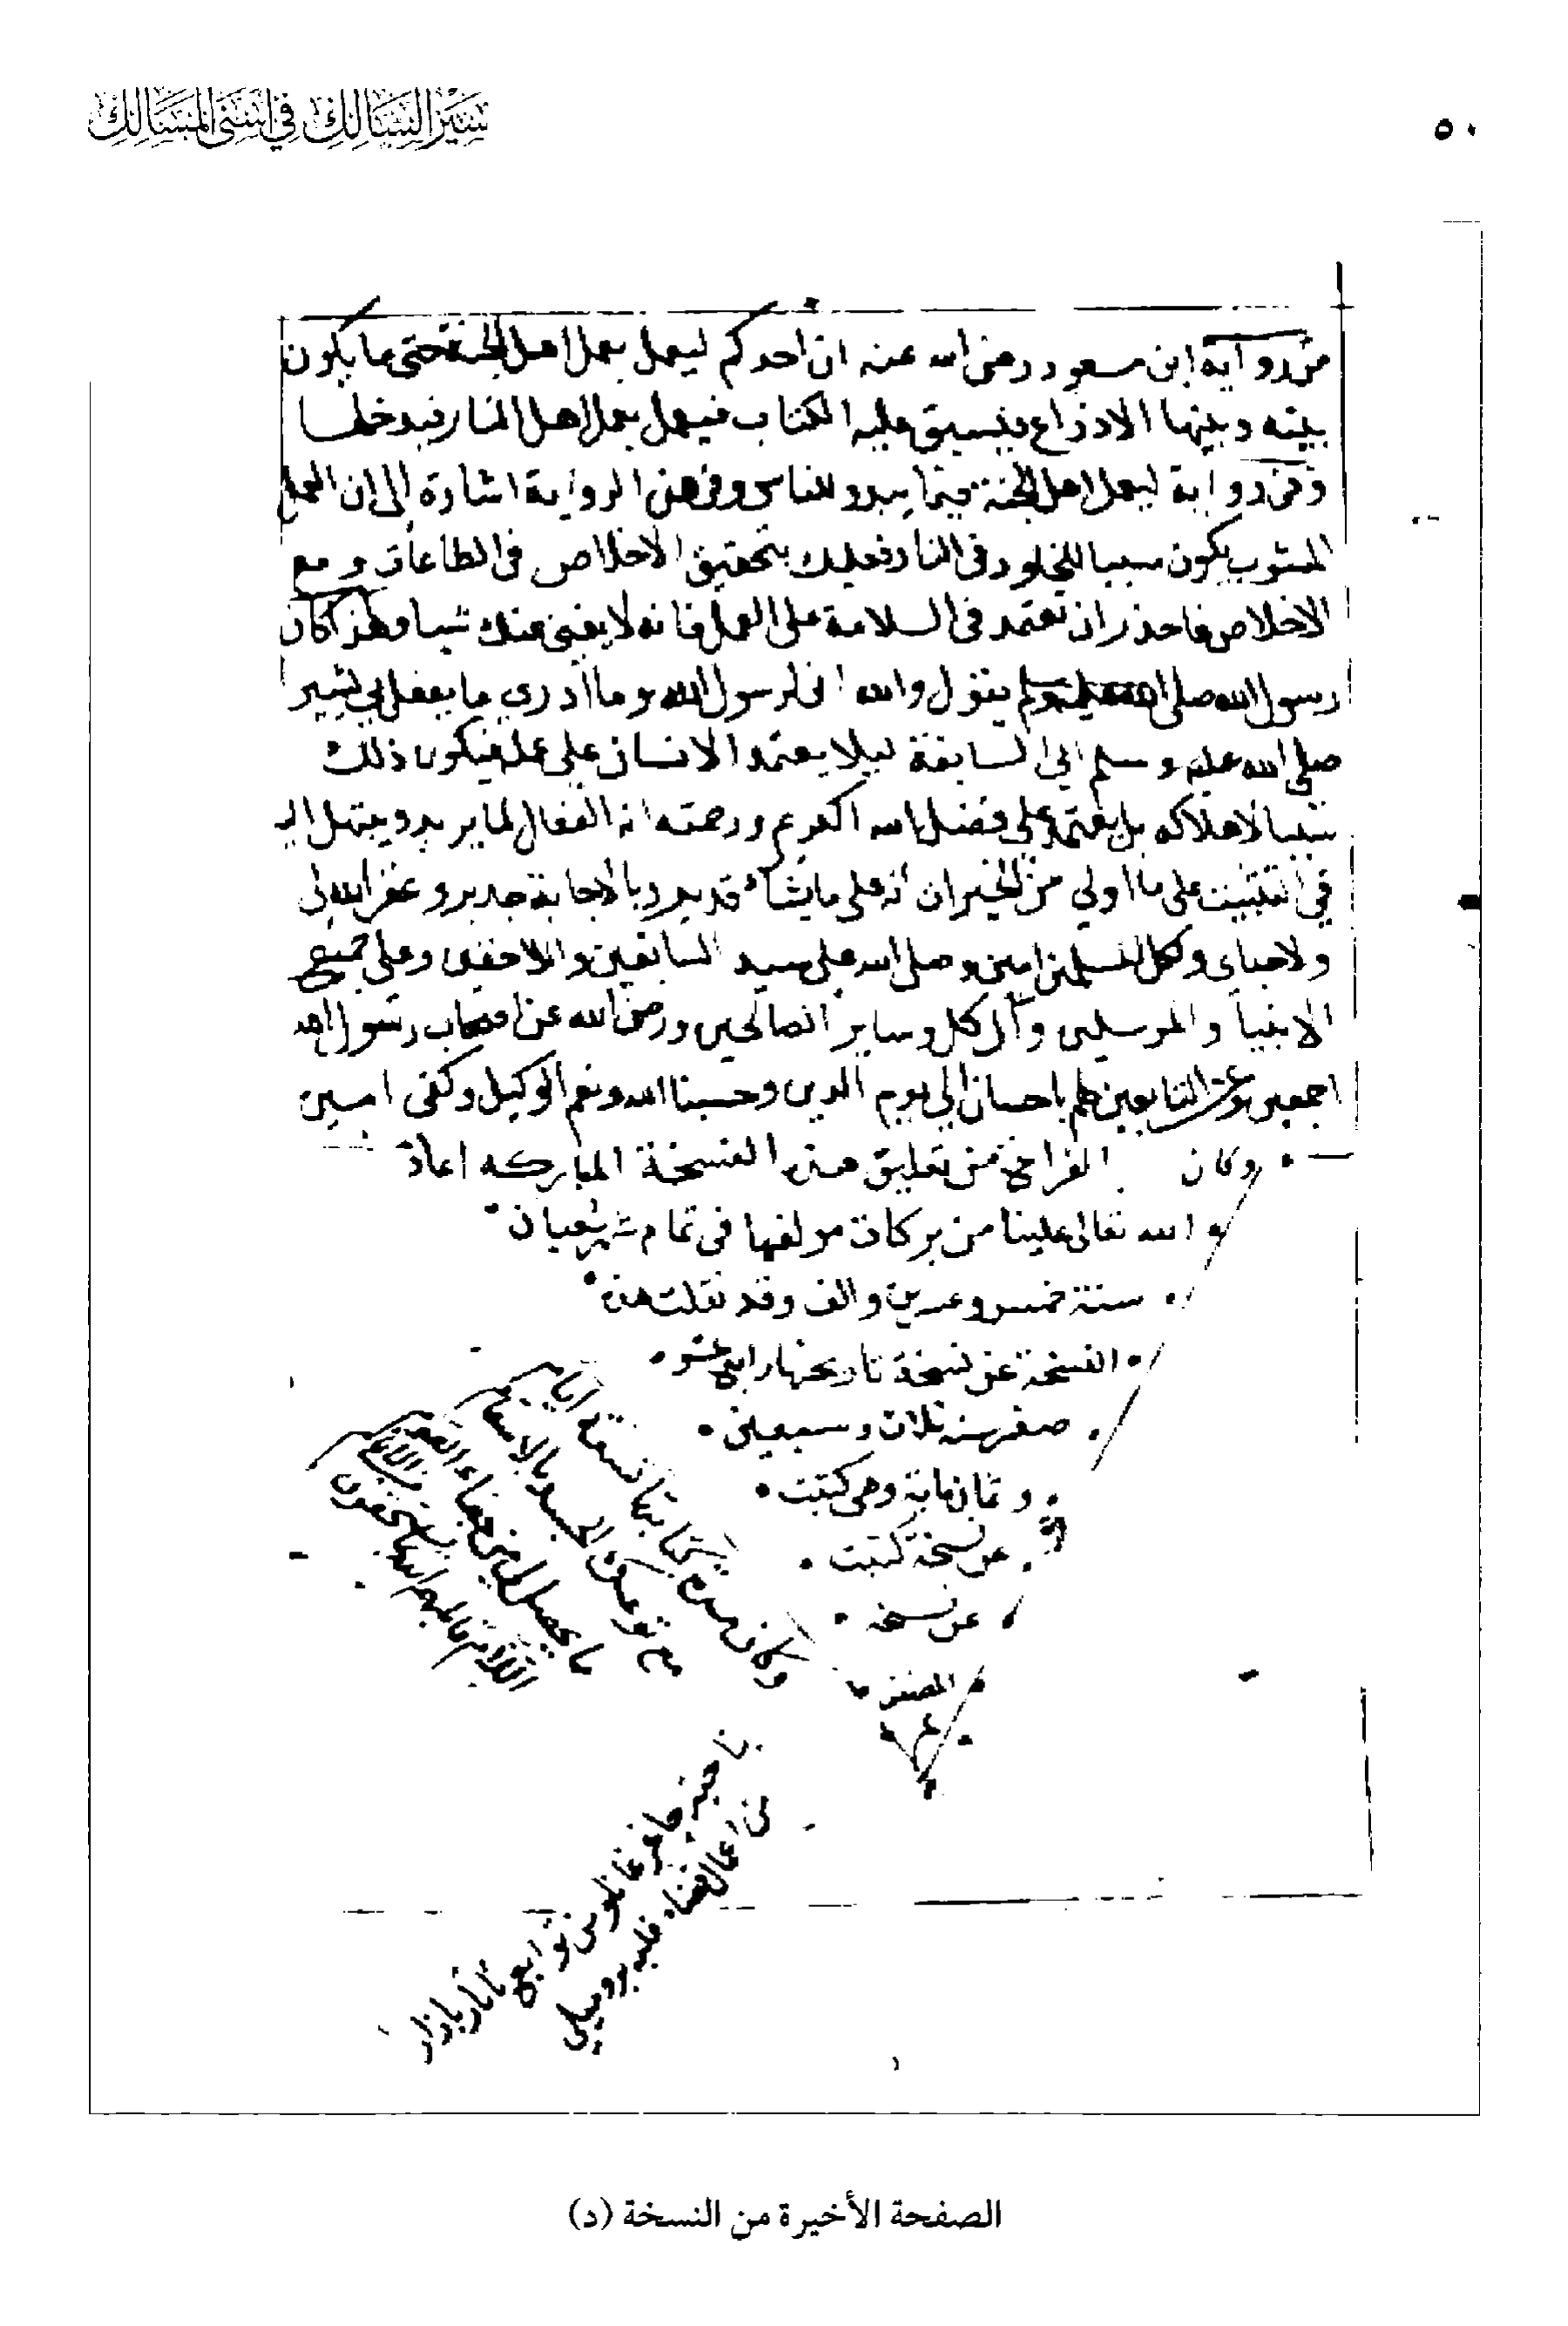 سير السالك في أسنى المسالك
٥٠
من رواية ابن مسعود رضى الله عنه ان احدكم ليعمل بعمل اهل الجنة حتى ما يكون
بينه وبينها الا ذراع فيسبق عليه الكتاب فيعمل بعمل اهل النار فيدخلها
وفى رواية ليعمل اهل الجنة فيما يبدو للناس وفى هذه الرواية اشارة الى ان العمل
المشوب يكون سببا للخلود فى النار فعليك بتحقيق الاخلاص فى الطاعات ومع
الاخلاص فاحذر ان تعتمد فى السلامة على العمل فانه لا يغنى عنك شيا وهذا كان
رسول الله صلى الله عليه وسلم يقول والله انى لرسول الله وما أدرى ما يفعل بى يشير
صلى الله عليه وسلم الى السابقة ليلا يعتمد الانسان على عمله فيكون ذلك
سببا لاهلاكه بل يعتمد على فضل الله اكرم ورحمته انه الفعال لما يريد ويبتهل اليه
في التثبيت على ما اولي من الخير ان انه على ما يشاء قدير وبالاجابة جدير وغفر الله لى
ولاحباى وكل المسلمين امين وصلى الله على سيد السابقين واللاحقين وعلى جميع
الانبيا والمرسلين وآل كل وساير الصالحين ورضى الله عن اصحاب رسول الله
اجمعين وعن التابعين لهم باحسان الى يوم الدين وحسبنا الله ونعم الوكيل وكفى امين
وكان الفراغ من تعليق هذه النسخة المباركه اعاد
الله تعالى علينا من بركات مولفها فى تمام شهر شعبان
سنة خمس وعشرين والف وقد نقلت هذه
النسخة عن نسخة تاريخها رابع عشر
صفر سنة ثلاث وسبعين
وثمان ماية وهى كتبت
عن نسخة كتبت
عن نسخة
المصنف
وكان مدة كتابتها تسعة ايام
الصفحة الأخيرة من النسخة (د)